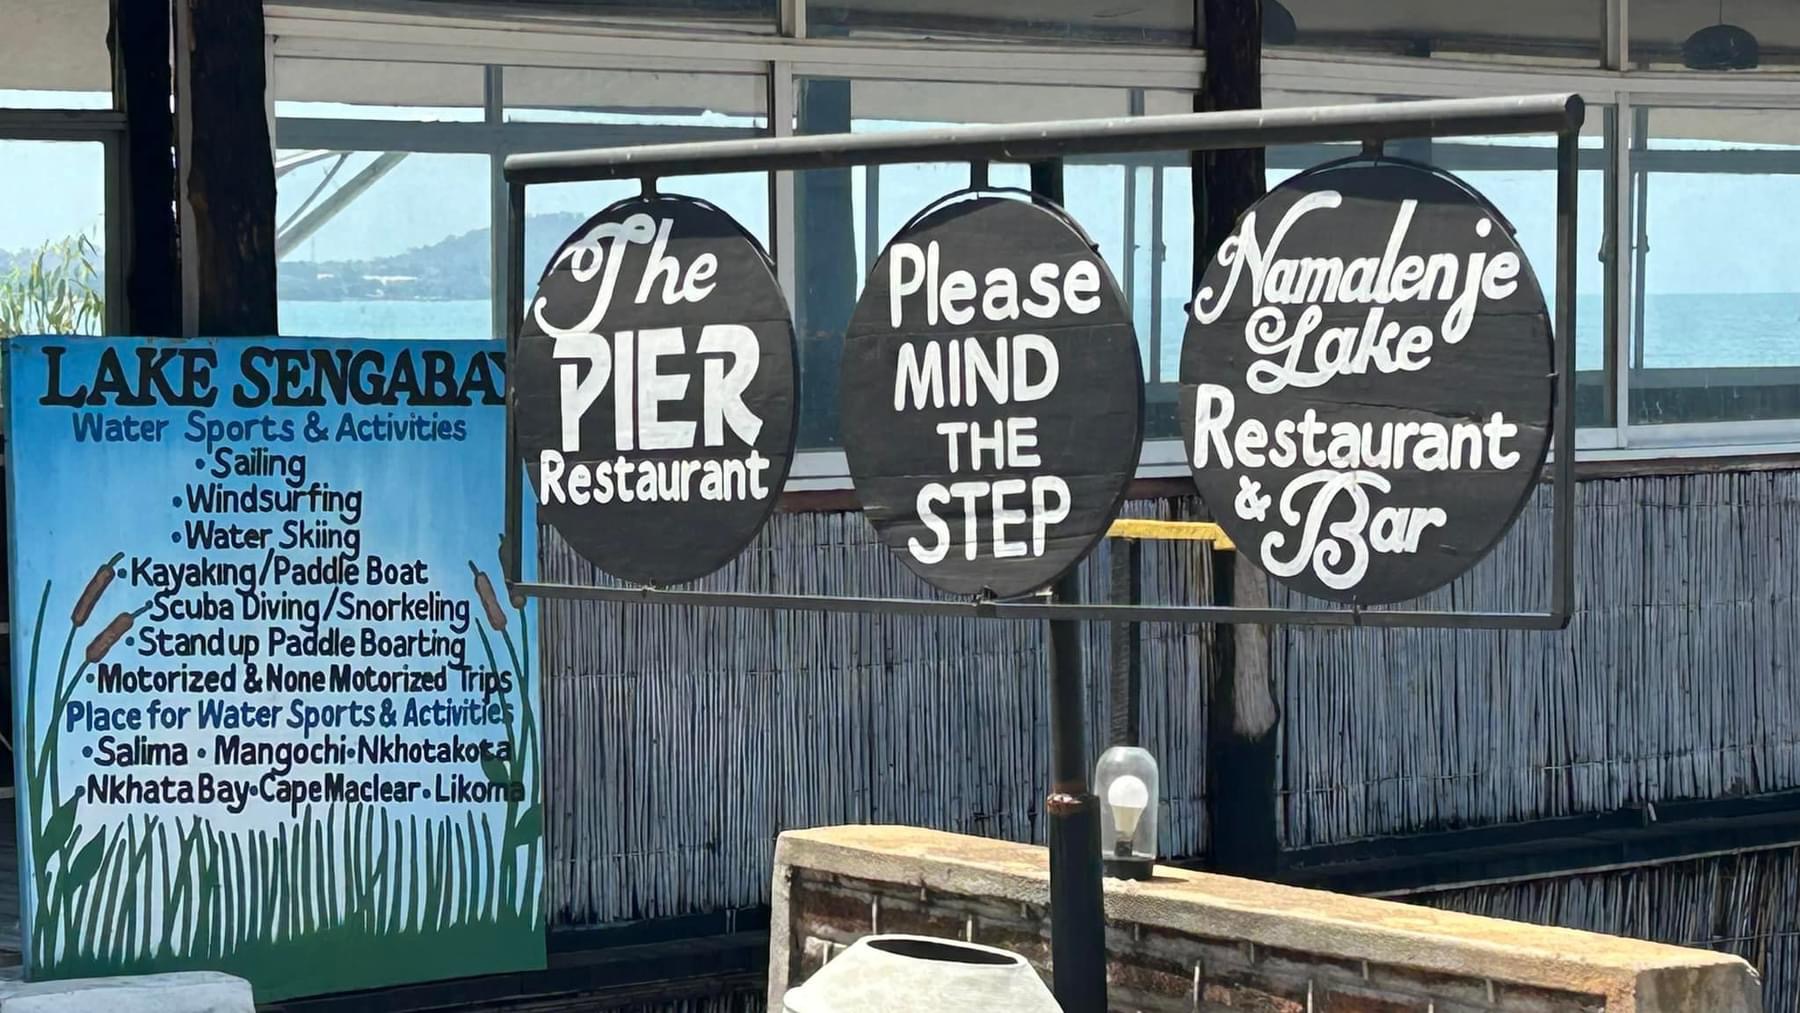 LAKE SENGABAY
Water Sports & Activities
•Sailing
•Windsurfing
•Water Skiing
•Kayaking/Paddle Boat
•Scuba Diving/Snorkeling
•Standup Paddle Boarting
•Motorized & None Motorized Trips
Place for Water Sports & Activities
•Salima • Mangochi•Nkhotakota
•Nkhata Bay•Cape Maclear•Likoma
The
PIER
Restaurant
Please
MIND
THE
STEP
Namalenje
Lake
Restaurant
& Bar